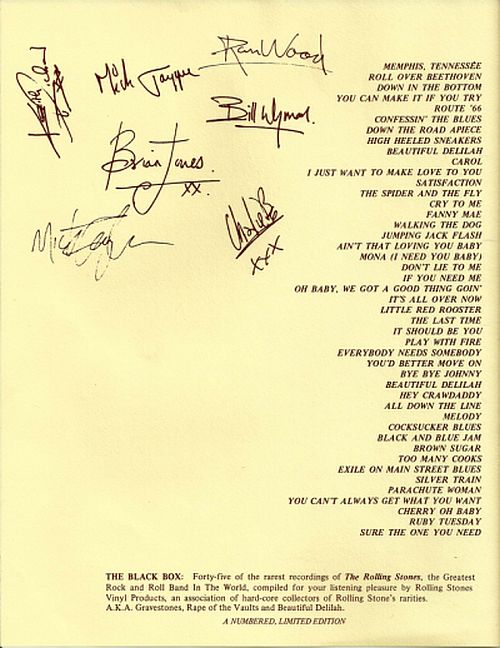 Ron Wood
Mick Jagger
Bill Wyman.
Brian Jones.
xx.
Mick Taylor
Charlie
xxx
MEMPHIS, TENNESSÉE
ROLL OVER BEETHOVEN
DOWN IN THE BOTTOM
YOU CAN MAKE IT IF YOU TRY
ROUTE '66
CONFESSIN' THE BLUES
DOWN THE ROAD APIECE
HIGH HEELED SNEAKERS
BEAUTIFUL DELILAH
CAROL
I JUST WANT TO MAKE LOVE TO YOU
SATISFACTION
THE SPIDER AND THE FLY
CRY TO ME
FANNY MAE
WALKING THE DOG
JUMPING JACK FLASH
AIN'T THAT LOVING YOU BABY
MONA (I NEED YOU BABY)
DON'T LIE TO ME
IF YOU NEED ME
OH BABY, WE GOT A GOOD THING GOIN'
IT'S ALL OVER NOW
LITTLE RED ROOSTER
THE LAST TIME
IT SHOULD BE YOU
PLAY WITH FIRE
EVERYBODY NEEDS SOMEBODY
YOU'D BETTER MOVE ON
BYE BYE JOHNNY
BEAUTIFUL DELILAH
HEY CRAWDADDY
ALL DOWN THE LINE
MELODY
COCKSUCKER BLUES
BLACK AND BLUE JAM
BROWN SUGAR
TOO MANY COOKS
EXILE ON MAIN STREET BLUES
SILVER TRAIN
PARACHUTE WOMAN
YOU CAN'T ALWAYS GET WHAT YOU WANT
CHERRY OH BABY
RUBY TUESDAY
SURE THE ONE YOU NEED
THE BLACK BOX: Forty-five of the rarest recordings of The Rolling Stones, the Greatest
Rock and Roll Band In The World, compiled for your listening pleasure by Rolling Stones
Vinyl Products, an association of hard-core collectors of Rolling Stone's rarities.
A.K.A. Gravestones, Rape of the Vaults and Beautiful Delilah.
A NUMBERED, LIMITED EDITION